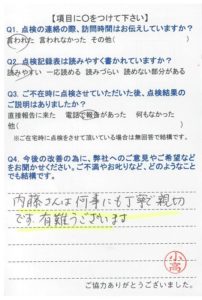 【項目に○をつけて下さい】
Q1. 点検の連絡の際、訪問時間はお伝えしていますか?
言われた 言われなかった その他( )
Q2. 点検記録表は読みやすく書かれていますか?
読みやすい 一応読める 読みづらい 読めない部分がある
Q3. ご不在時に点検させていただいた後、点検結果の
ご説明はありましたか?
直接報告に来た 電話で報告があった 何もなかった
他( )
※ご在宅時に点検をさせて頂いている場合は無回答で結構です。
Q4. 今後の改善の為に、弊社へのご意見やご希望などを
お聞かせください。ご不満やお叱りなど、どのようなことでも
結構です。
内藤さんは何事にも丁寧で親切
です。有難うございます
小高
ご協力ありがとうございました。